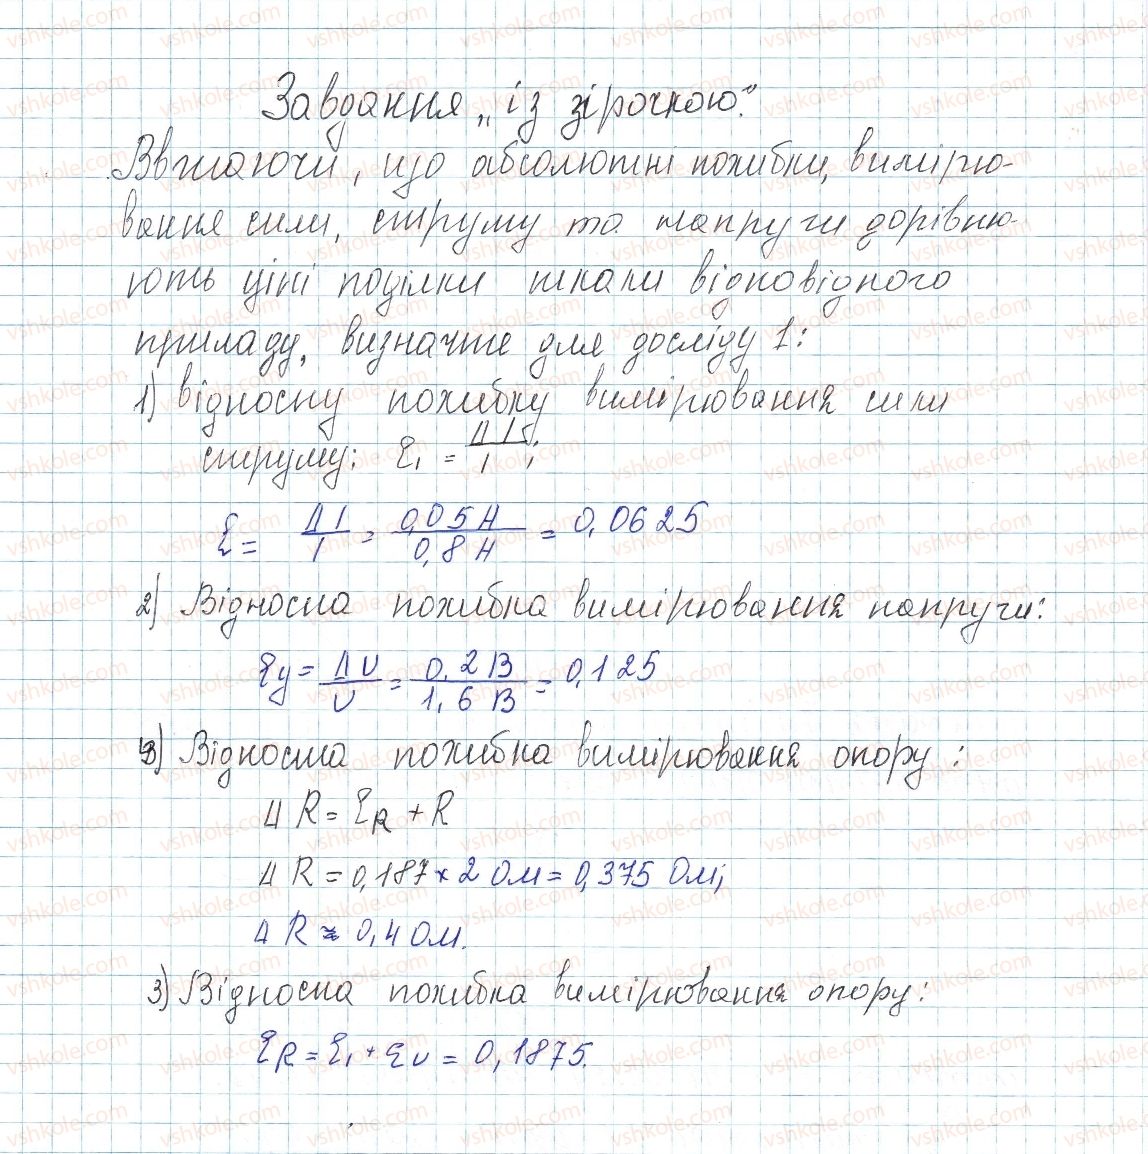 Завдання „із зірочкою."
Вважаючи, що абсолютні похибки, вимірю-
вання сили, струму та напруги дорівню-
ють ціні поділки шкали відповідного
приладу, визначте для досліду 1:
1) відносну похибку вимірювання сили
струму: ξ₁ = ΔI / I ;
ξ = ΔI / I = 0,05 А / 0,8 А = 0,0625
2) Відносна похибка вимірювання напруги:
ξу = ΔU / U = 0,2 В / 1,6 В = 0,125
3) Відносна похибка вимірювання опору :
Δ R = ξR + R
Δ R = 0,187 × 2 Ом = 0,375 Ом;
Δ R ≈ 0,4 Ом.
3) Відносна похибка вимірювання опору:
ξR = ξ₁ + ξU = 0,1875.